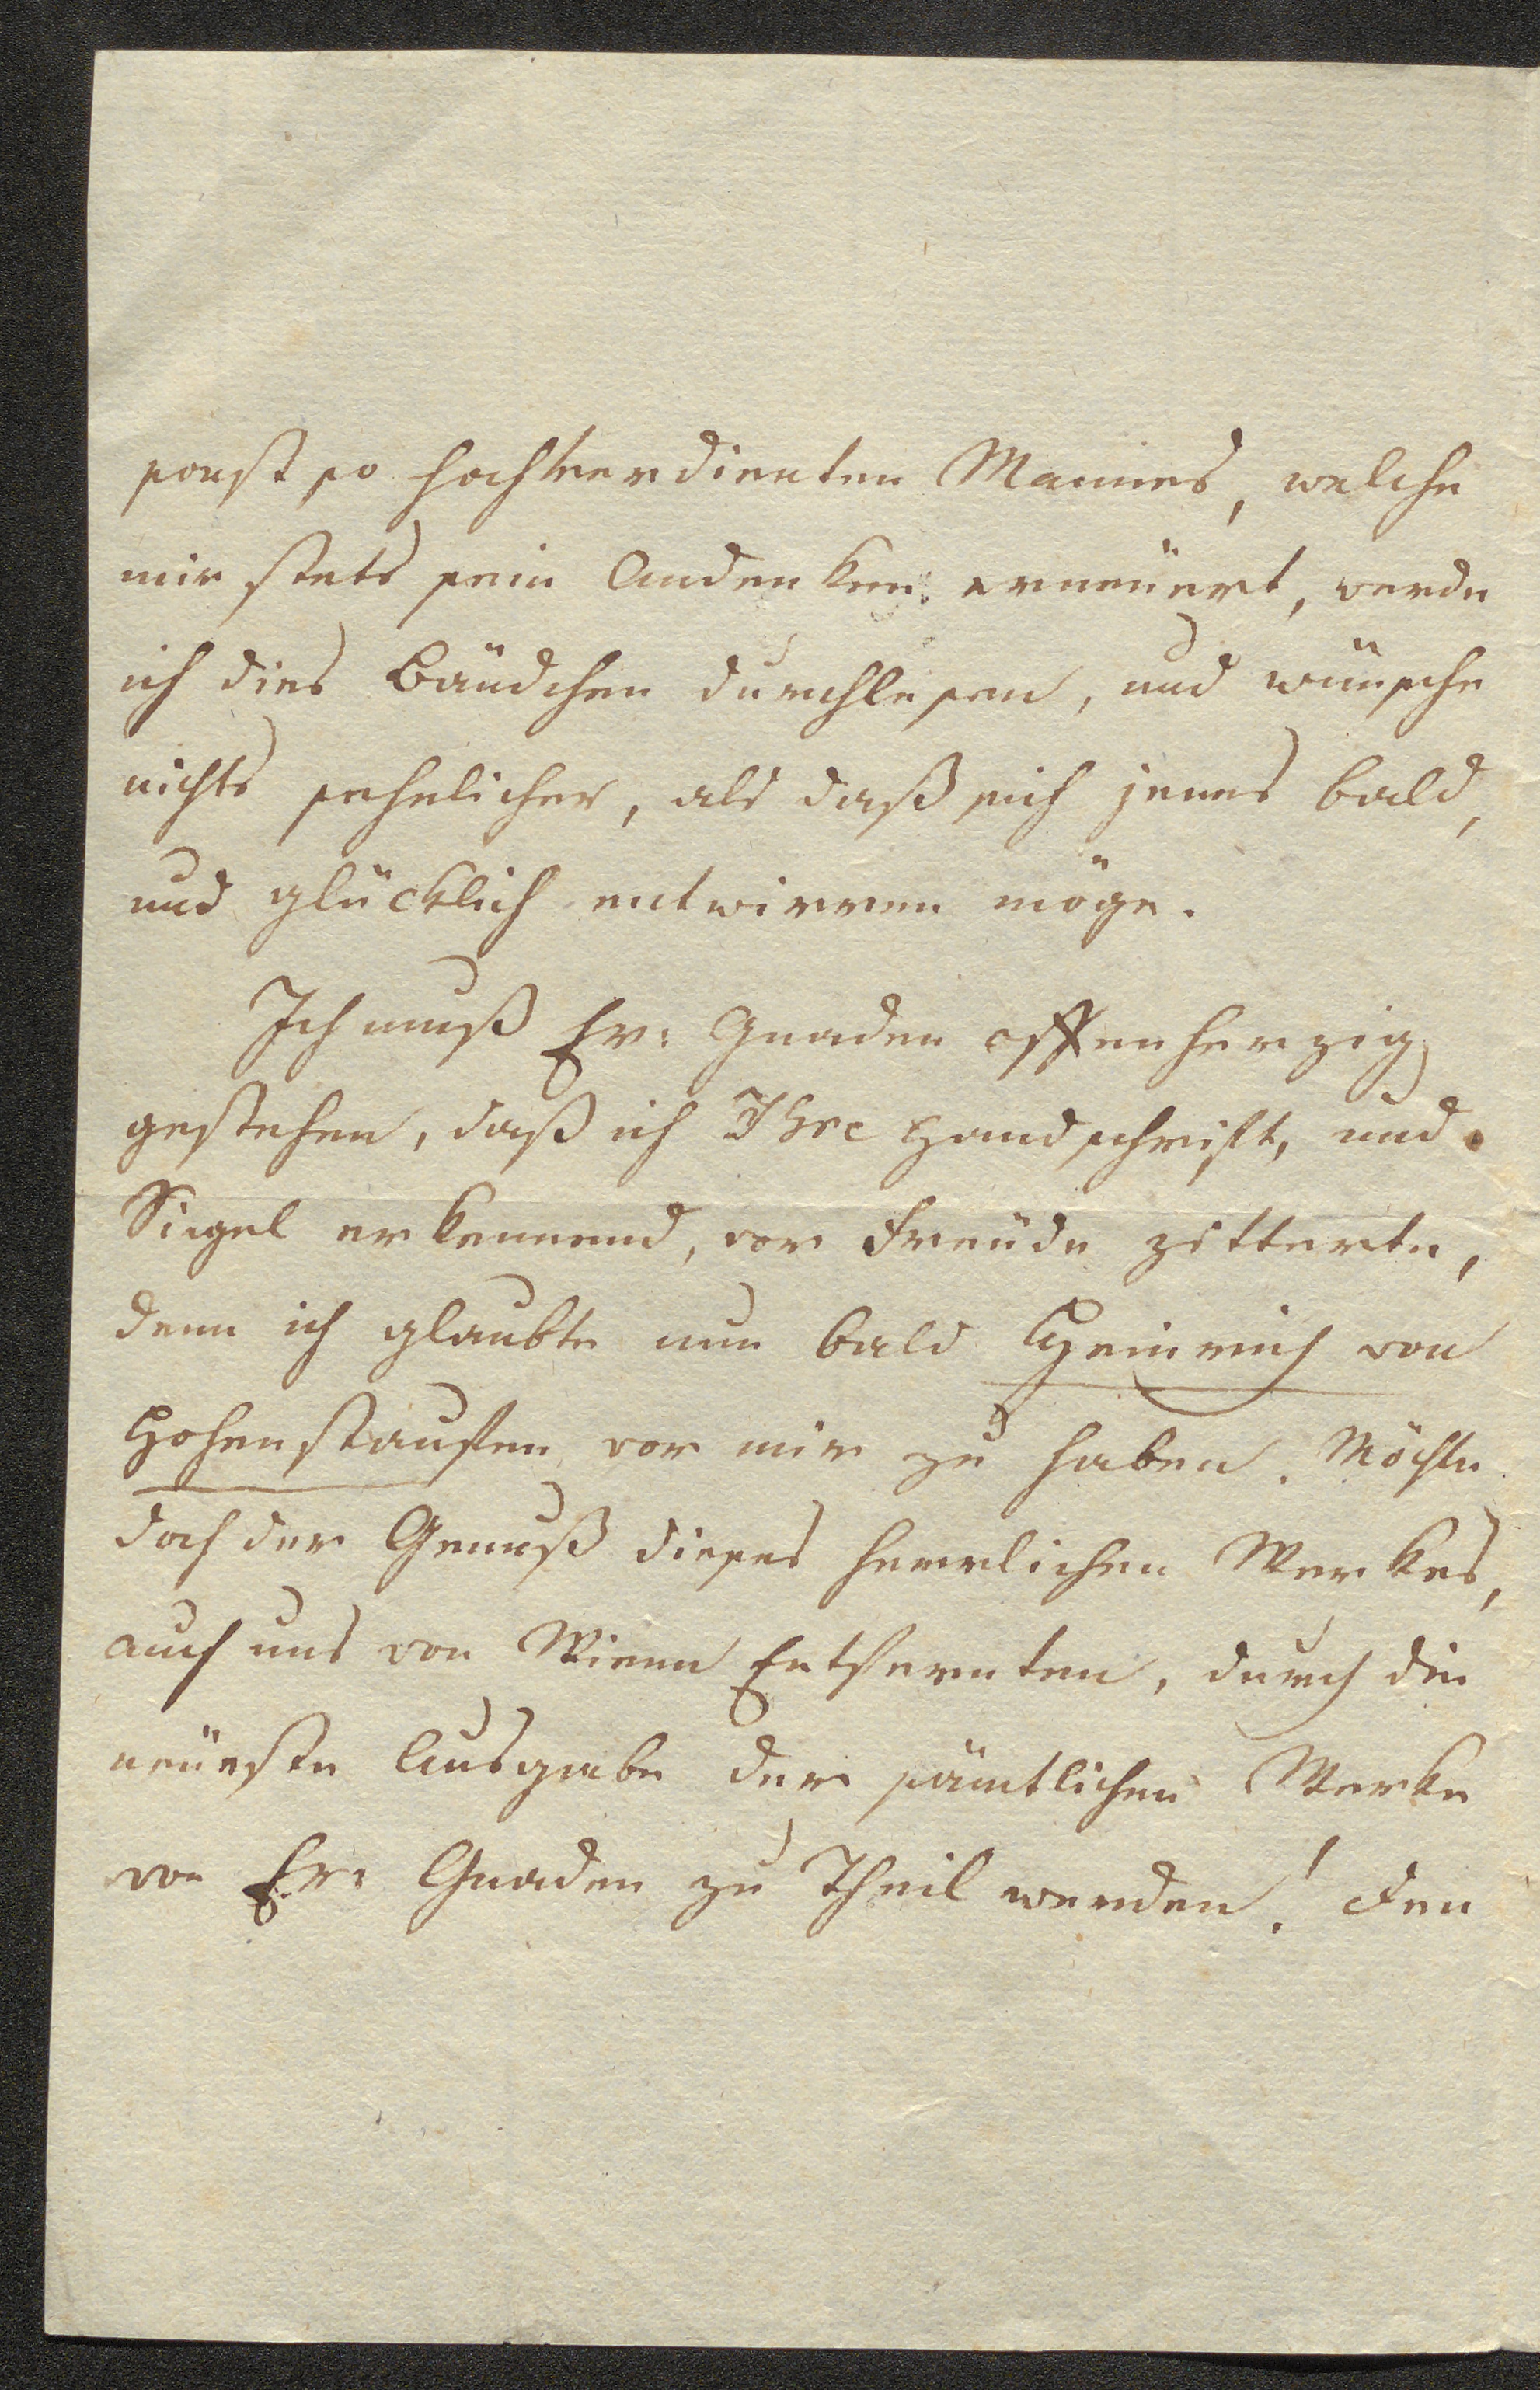 sonst so hochverdienten Mannes, welche
mir stets sein Andenken erneuert, werde
ich dies Bändchen durchlesen, und wünsche
nichts sehnlicher, als daß sich jenes bald,
und glücklich entwirren möge.
Ich muß Er: Gnaden offenherzig
gestehen, daß ich Ihre Handschrift, und
Siegel erkennend, vor Freude zitterte,
denn ich glaubte nun bald Heinrich von
Hohenstaufen vor mir zu haben. Möchte
doch der Genuß dieses herrlichen Werkes,
auch uns von Wienn Entfernten, durch die
neüeste Ausgabe der sämtlichen Werke
von Er: Gnaden zu Theil werden! Den